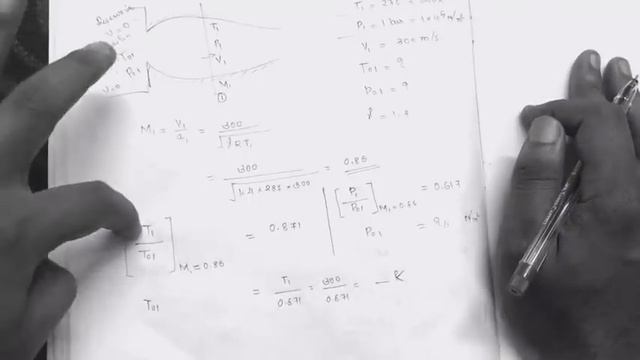 V=0
T01
P01
V=0
T1
P1
V1
M1
①
P1 = 1 bar = 1×10⁵ N/m²
V1 = 300 m/s
T01 = ?
P01 = ?
γ = 1.4
M1 = V1/a1 = 300/√γRT1
= 300/√1.4×285×300 = 0.86
[T1/T01] M1=0.86 = 0.871
[P1/P01] M1=0.86 = 0.617
P01 =
T01 = T1/0.871 = 300/0.871 = — K